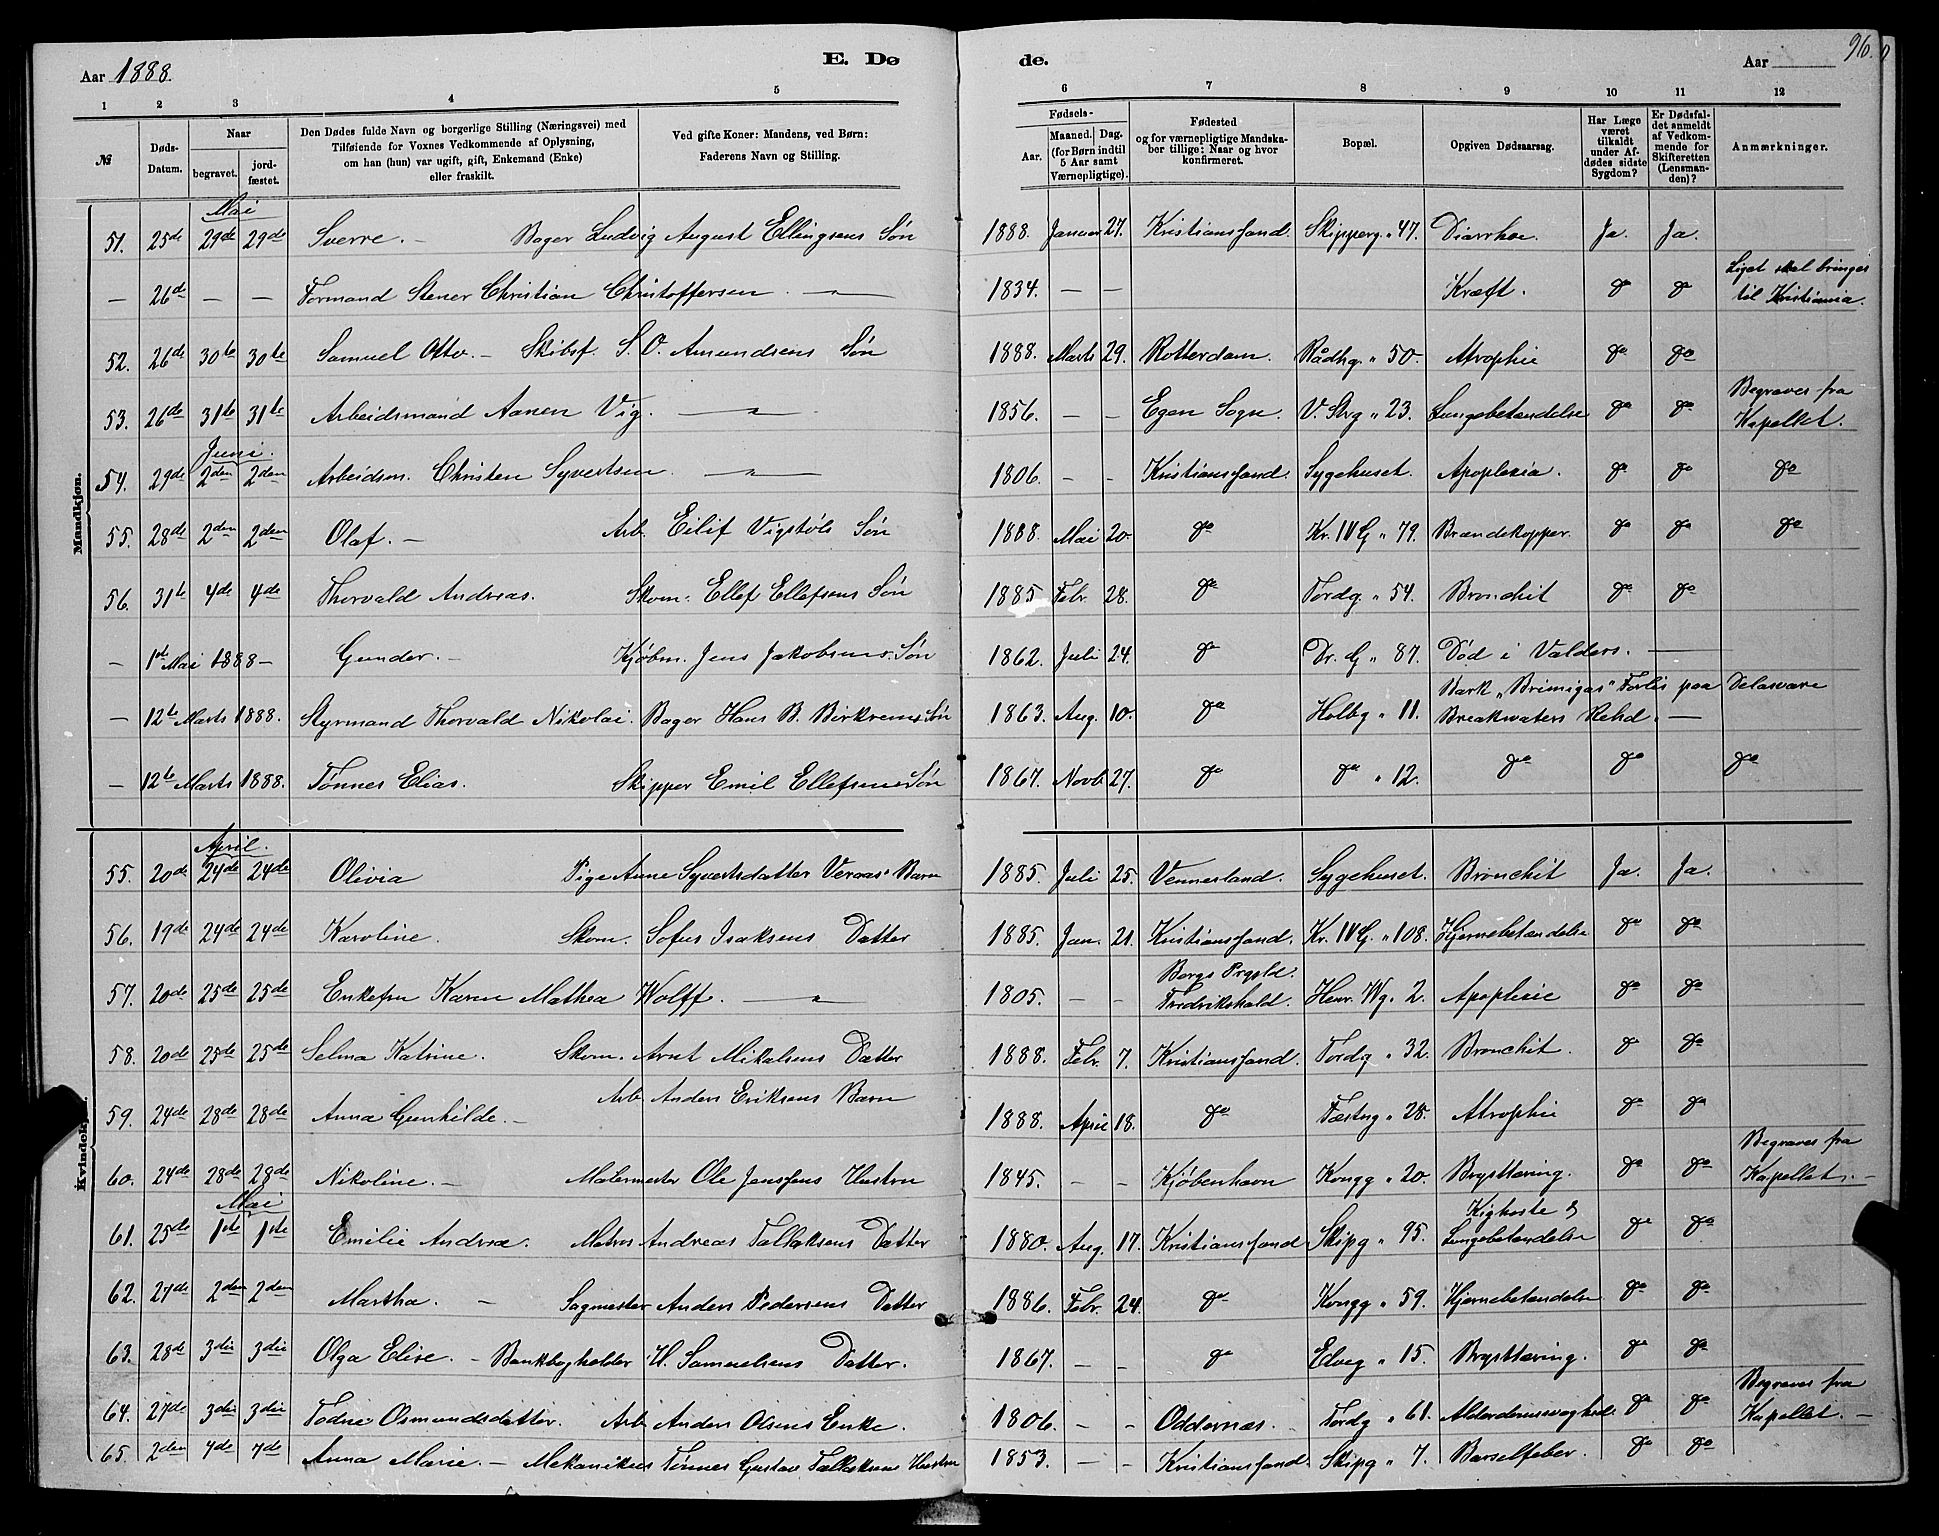 Aar 1888. E. Døde. Aar 96.
1 2 3 4 5 6 7 8 9 10 11 12
№ Døds-Datum. Naar begravet. jordfæstet. Den Dødes fulde Navn og borgerlige Stilling (Næringsvei) med Tilføiende for Voxnes Vedkommende af Oplysning, om han (hun) var ugift, gift, Enkemand (Enke) eller fraskilt. Ved gifte Koner: Mandens, ved Børn: Faderens Navn og Stilling. Fødsels- Aar. Maaned. Dag. (for Børn indtil 5 Aar samt Værnepligtige). Fødested og for værnepligtige Mandskaber tillige: Naar og hvor konfirmeret. Bopæl. Opgiven Dødsaarsag. Har Læge været tilkaldt under Afdødes sidste Sygdom? Er Dødsfaldet anmeldt af Vedkommende for Skifteretten (Lensmanden)? Anmærkninger.
Mandkjøn.
Mai
51. 25de 29de 29de Sverre. – Bager Ludvig August Ellingsens Søn 1888. Januar 27. Kristianssand. Skipperg. " 47. Diarrhoe. Ja. Ja.
– 26de – – Formand Stener Christian Christoffersen. —"— 1834. – – Kræft. do do Liget skal bringes til Kristiania.
52. 26de 30te 30te Samuel Otto. – Skibsf. S. O. Amundsens Søn 1888. Marts 29. Rotterdam. Rådhg. " 50. Atrophie do do
53. 26de 31te 31te Arbeidsmand Aanen Vig. —"— 1856. – – Egen Sogn. V. Strg " 23. Lungebetændelse do do Begraves fra Kapellet.
Juni.
54. 29de 2den 2den Arbeidsm. Christen Syvertsen. —"— 1806. – – Kristianssand. Sygehuset. Apoplexia. do do do
55. 28de 2den 2den Olaf. – Arb. Eilif Vigstøls Søn 1888. Mai 20. do Kr. IV G " 79. Brændekopper. do do do
56. 31te 4de 4de Thorvald Andreas. Skom. Ellef Ellefsens Søn 1885. Febr. 28. do Tordg. " 54. Bronchit do do
– 1ste Mai 1888 – Gunder. – Kjøbm. Jens Jakobsens Søn 1862. Juli 24. do Dr. G " 87. Død i Valders. —
– 12te Marts 1888. Styrmand Thorvald Nikolai. Bager Hans B. Birkrems Søn 1863. Aug. 10. do Holbg " 11. Bark "Brimigas" Forlis paa Delasvare Breakwaters Rehd. —
– 12te Marts 1888. Tønnes Elias. Skipper Emil Ellefsens Søn 1867. Novb. 27. do do " 12. do do do
Kvindekjøn.
April.
55. 20de 24de 24de Olivia Pige Anne Syvertsdatter Veraas' Barn 1885. Juli 25. Vennesland. Sygehuset. Bronchit Ja. Ja.
56. 19de 24de 24de Karoline. Skom. Sofus Isaksens Datter 1885. Jan. 21. Kristianssand. Kr. IV G. " 108. Hjernebetændelse do do
57. 20de 25de 25de Enkefru Karen Mathea Wolff. —"— 1805. – – Bergs Prgjld. Fredrikshald. Henr. Wg. 2. Apoplexie do do
58. 20de 25de 25de Selma Katrine. Skom. Arnt Mikalsens Datter 1888. Febr. 7. Kristianssand. Tordg " 32. Bronchit. do do
59. 24de 28de 28de Anna Gunhilde. – Arb. Anders Eriksens Barn 1888. April 18. do Fæstng " 28. Atrophie do do
60. 24de 28de 28de Nikoline. – Malermester Ole Jenssens Hustru 1845. – – Kjøbenhavn Kongg " 20. Brysttæring. do do Begraves fra Kapellet. –
Mai
61. 25de 1ste 1ste Emilie Andrea. Matros Andreas Tallaksens Datter 1880. Aug. 17. Kristianssand Skipg " 95. Kighoste & Lungebetændelse do do
62. 27de 2den 2den Martha. – Sagmester Anders Pedersens Datter 1886. Febr. 24. do Kongg " 59. Hjernebetændelse do do
63. 28de 3die 3die Olga Elise. – Bankbogholder H. Samuelsens Datter. 1867. – – do Elveg " 15. Brysttæring. do do
64. 27de 3die 3die Todne Osmundsdatter. Arb. Anders Olsens Enke. 1806. – – Oddernæs. Tordg " 61. Alderdomssvaghed. do do Begraves fra Kapellet. –
65. 2den 7de 7de Anna Marie. – Mekanikus Tønnes Gustav Tallaksens Hustru 1853. – – Kristianssand. Skipg " 7. Barselfeber. do do